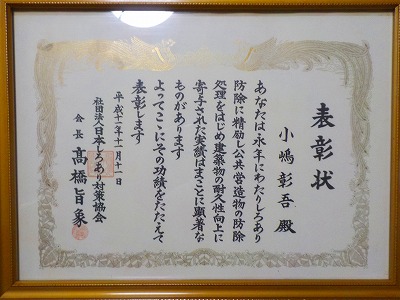 表彰状
小嶋彰吾 殿
あなたは永年にわたりしろあり
防除に精励し公共営造物の防除
処理をはじめ建築物の耐久性向上に
寄与された実績はまことに顕著な
ものがあります
よってここにその功績をたたえて
表彰します
平成十一年十一月十一日
社団法人日本しろあり対策協会
会長 髙橋旨象